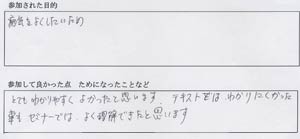 参加された目的
病気をよくしたいため
参加して良かった点 ためになったことなど
とてもわかりやすく よかったと思います。テキストでは わかりにくかった
事も セミナーでは、よく理解できたと思います